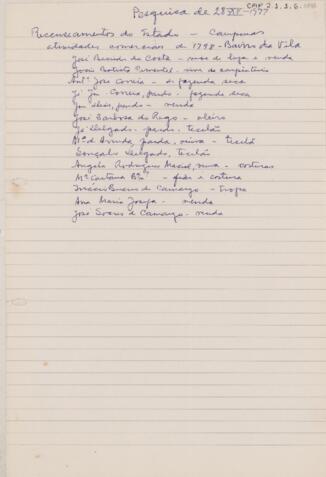 Pesquisa de 28-XI-1977
Recenseamentos do Estado - Campinas
atividades comerciais de 1798 - Bairro da Vila
José da Costa - de loja e venda
João Batista Pimentel - de carpinteiro
Antº José Correia - de fazenda seca
Correia, pardo - fazenda seca
pardo - venda
José Barbosa do Rego - oleiro
Jé Delgado - pardo. tecelão
Mª d Arruda, parda, viúva - tecelã
Gonçalo Delgado, tecelão
Angela Rodrigues Maciel, - costuras
Mª Caetana - fiar e costura
Inácio Bueno de Camargo - tropa
Ana Maria Josefa - venda
João Soares de Camargo - venda